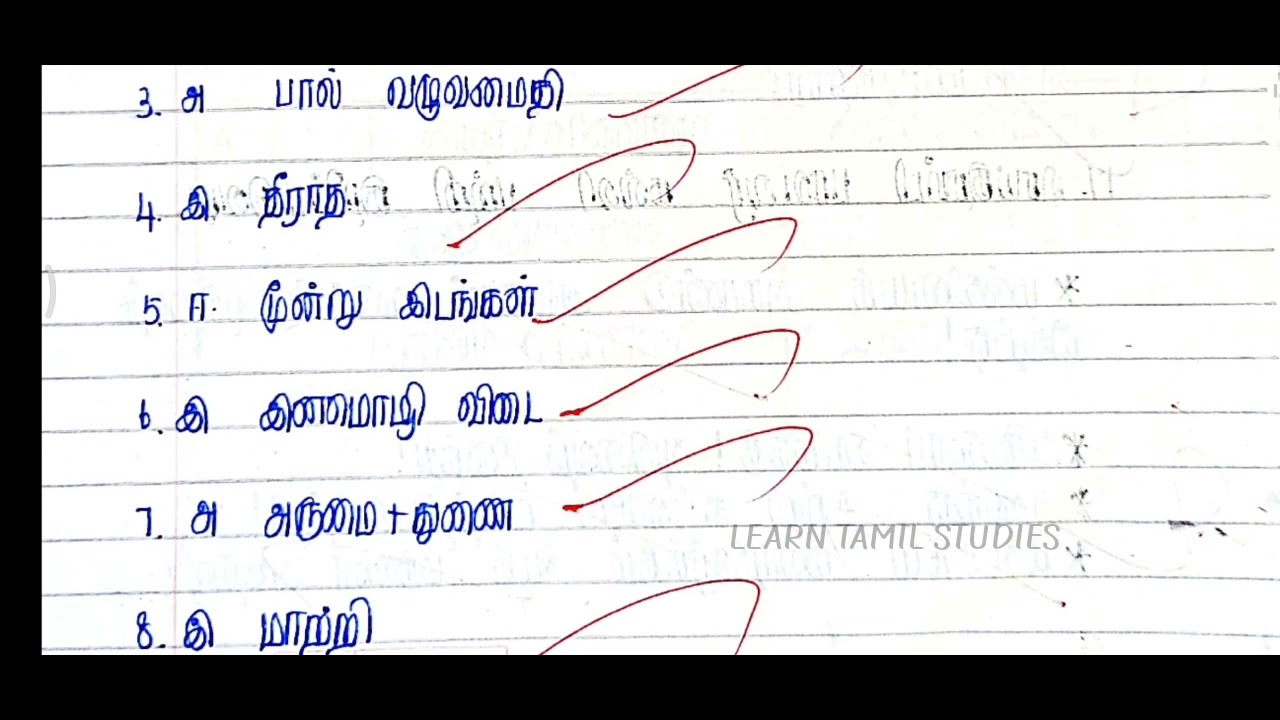 3. அ பால் வழுவமைதி
4. இ தீராத
5. ஈ. மூன்று இடங்கள்
6. இ இனமொழி விடை
7. அ அருமை + துணை
LEARN TAMIL STUDIES
8. இ மாற்றி